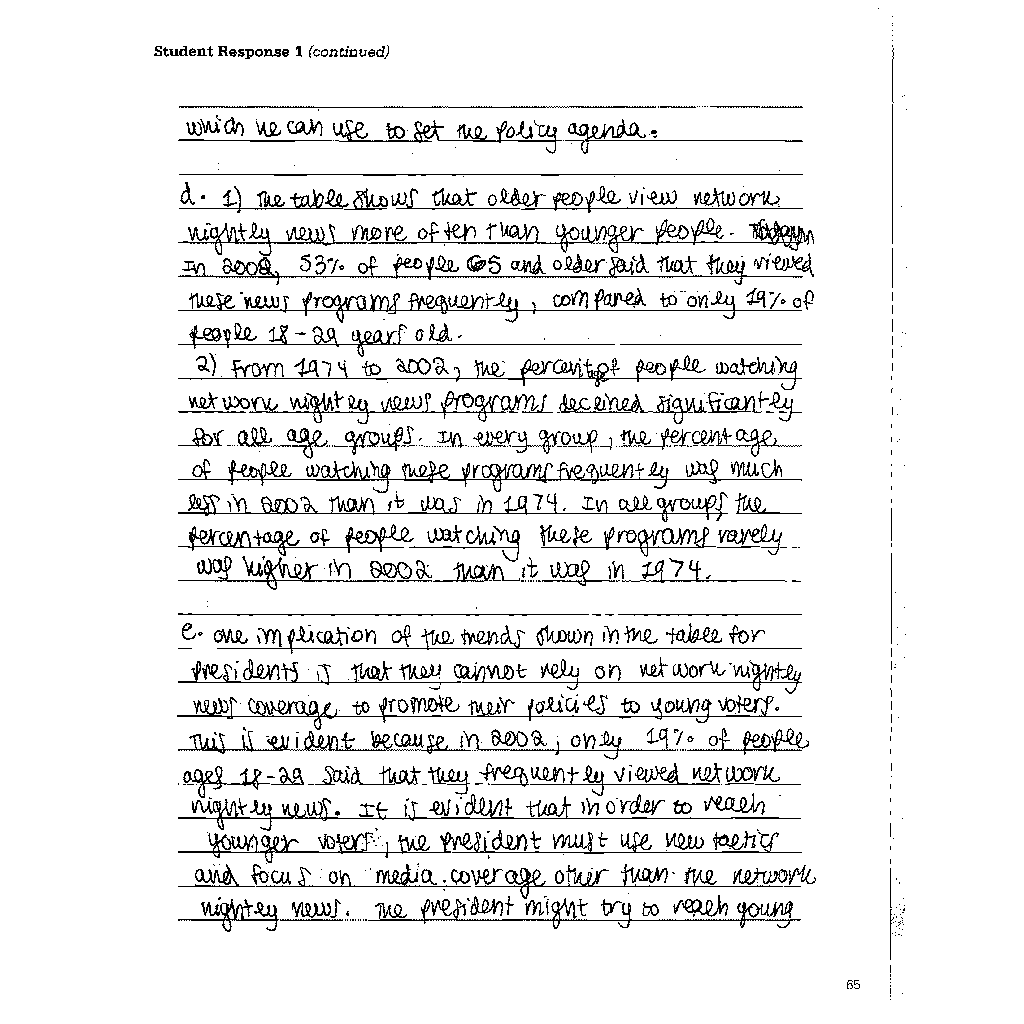 Student Response 1 (continued)
which he can use to set the policy agenda.
d. 1) The table shows that older people view network
nightly news more often than younger people.
In 2002, 53% of people 65 and older said that they viewed
these news programs frequently, compared to only 19% of
people 18-29 years old.
2) From 1974 to 2002, the percent of people watching
network nightly news programs declined significantly
for all age groups. In every group, the percentage
of people watching these programs frequently was much
less in 2002 than it was in 1974. In all groups, the
percentage of people watching these programs rarely
was higher in 2002 than it was in 1974.
e. One implication of the trends shown in the table for
presidents is that they cannot rely on network nightly
news coverage to promote their policies to young voters.
This is evident because in 2002, only 19% of people
ages 18-29 said that they frequently viewed network
nightly news. It is evident that in order to reach
younger voters, the president must use new tactics
and focus on media coverage other than the network
nightly news. The president might try to reach young
65